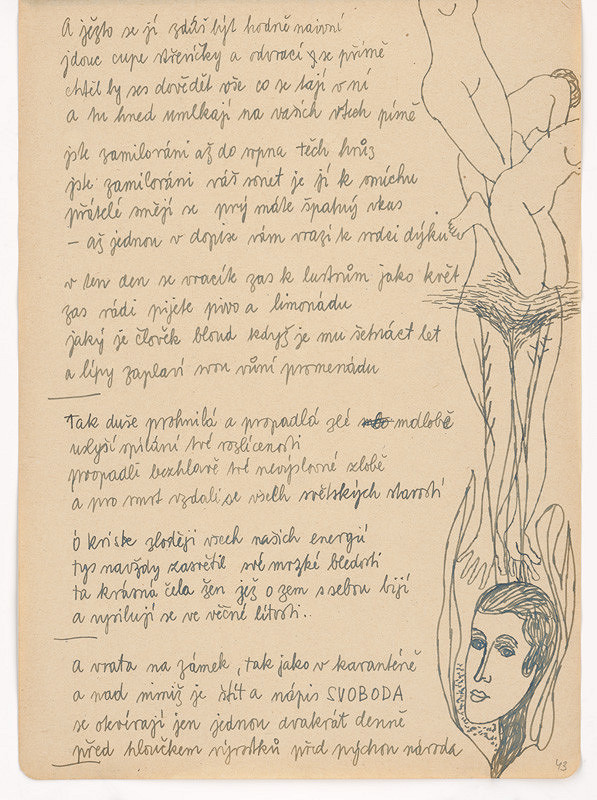 A ježto se jí zdáš být hodně naivní
jdouc cupe střevíčky a odvrací se přímě
chtěl by ses dovědět vše co se tají v ní
a tu hned umlkají na vašich rtech písně
jste zamilováni až do srpna těch hrůz
jste zamilováni váš sonet je jí k smíchu
přátelé smějí se prý máte špatný vkus
– až jednou v dopise vám vrazí k srdci dýku
v ten den se vracíte zas k lustrům jako květ
zas rádi pijete pivo a limonádu
jaký je člověk bloud když je mu šetnáct let
a lípy zaplaví svou vůní promenádu
Tak duše prohnilá a propadlá zlé mdlobě
uslyší spílání tvé rozlícenosti
propadli bezhlavě tvé nevýslovné zlobě
a pro smrt vzdali se všech světských starostí
Ó kriste zloději všech našich energií
tys navždy zasvětil své mrzké bledosti
ta krásná čela žen jež o zem s sebou bijí
a vysilují se ve věčné lítosti..
a vrata na zámek, tak jako v karanténě
a nad nimiž je štít a nápis SVOBODA
se otevírají jen jednou dvakrát denně
před hloučkem výrostků před pýchou národa
43